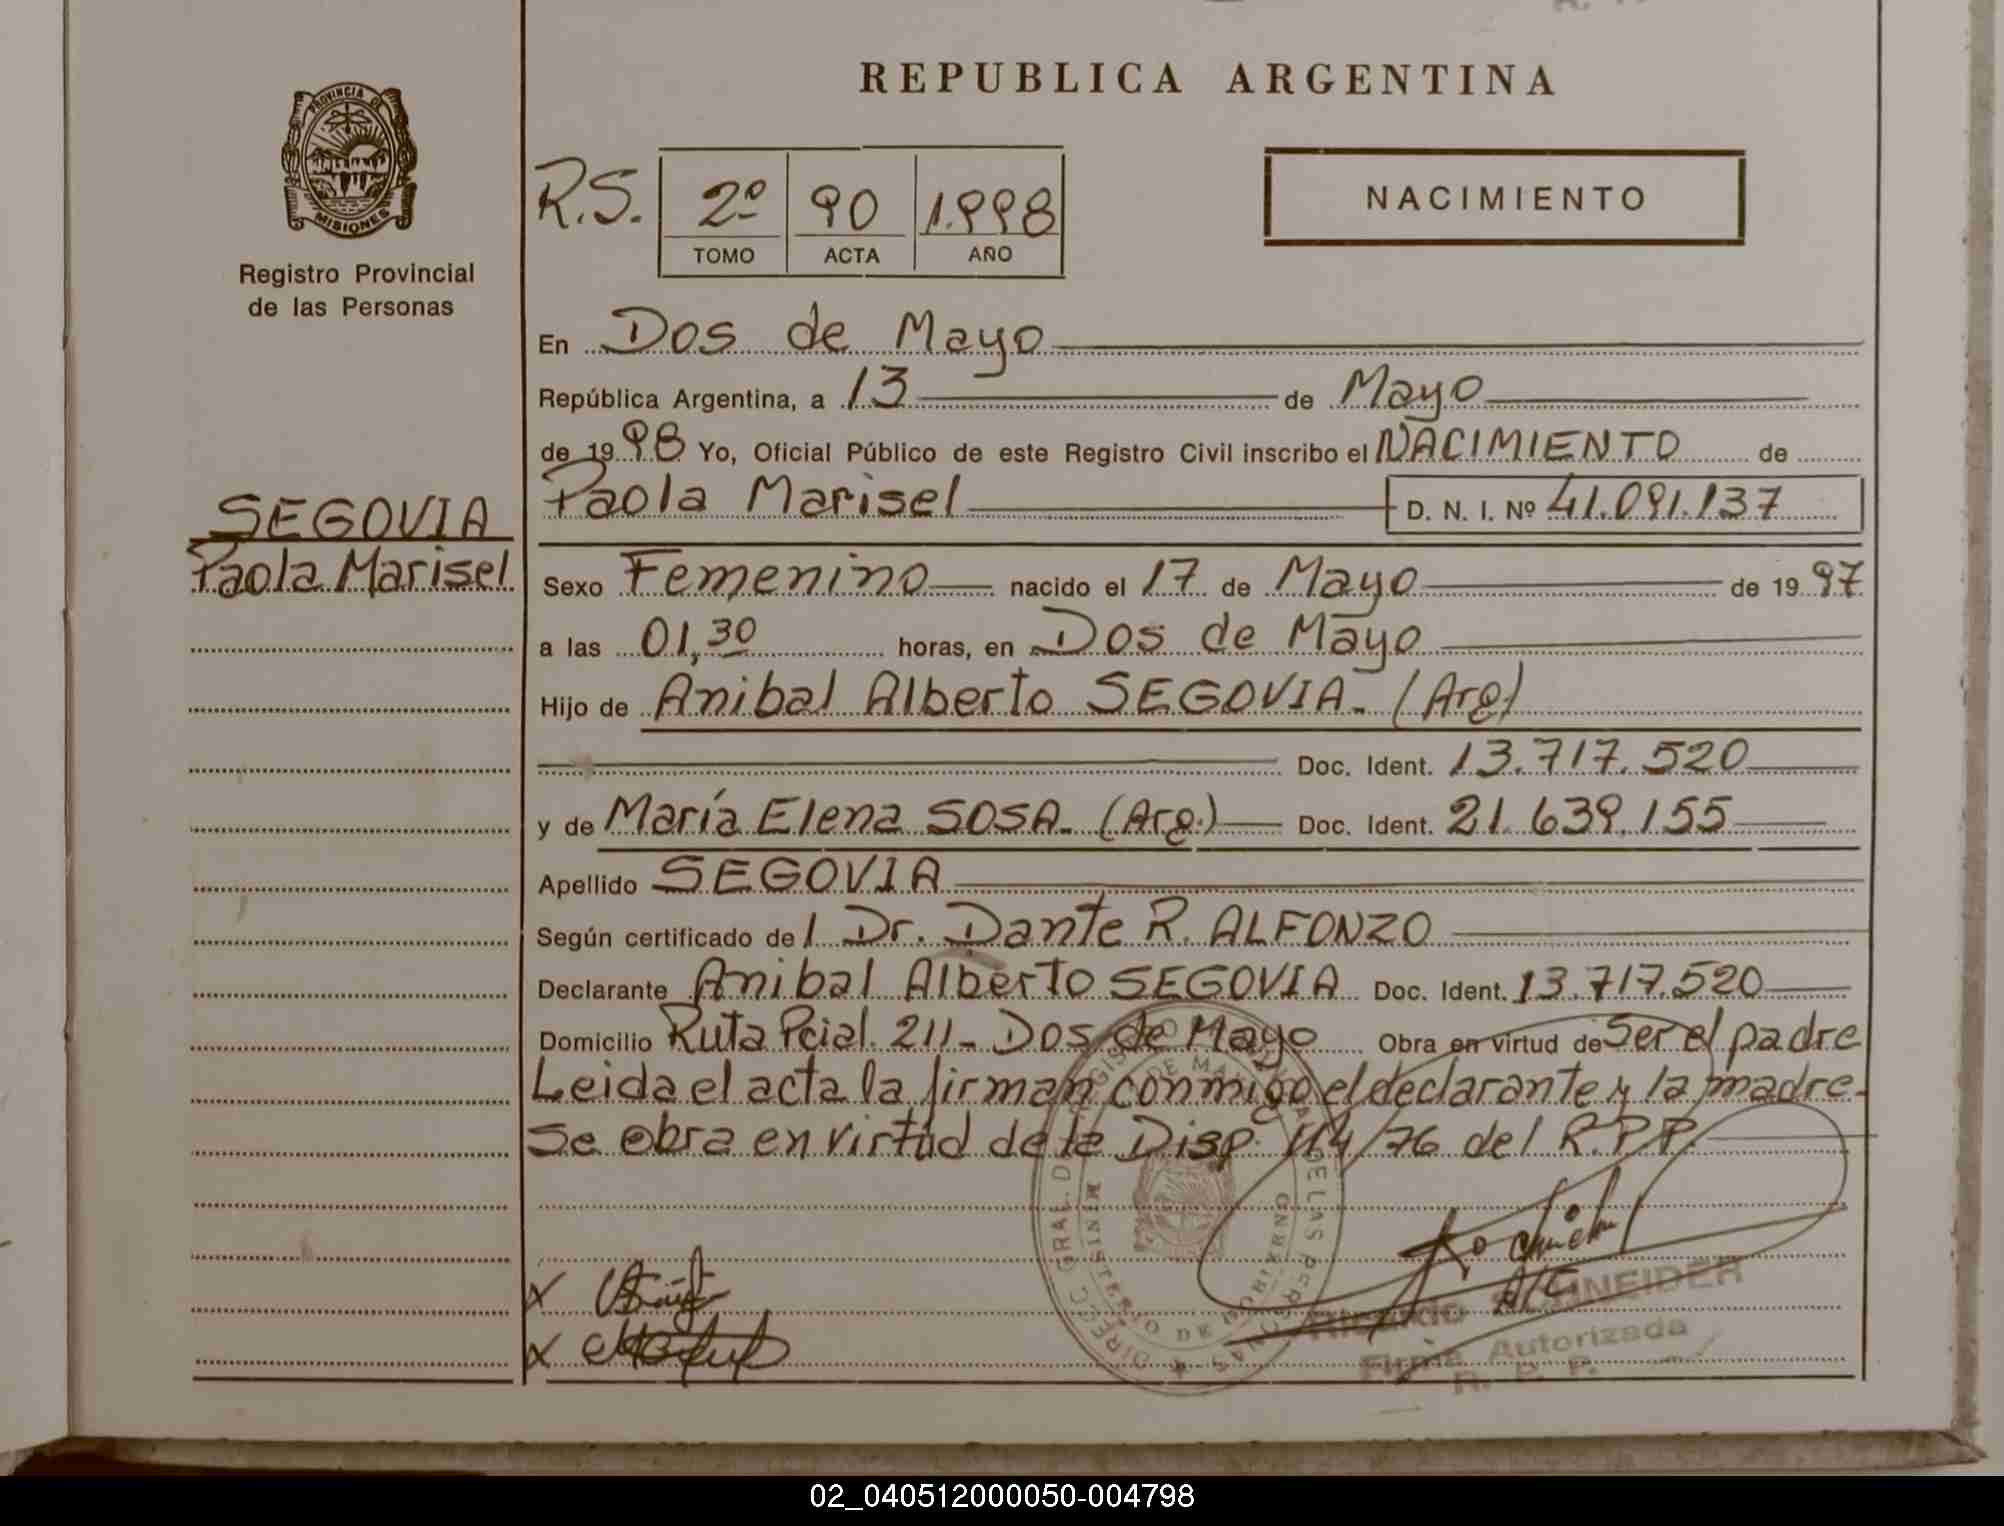 REPUBLICA ARGENTINA
PROVINCIA DE
MISIONES
Registro Provincial
de las Personas
R.S. 2º 90 1.998
TOMO ACTA AÑO
NACIMIENTO
En Dos de Mayo
República Argentina, a 13 de Mayo
de 1998 Yo, Oficial Público de este Registro Civil inscribo el NACIMIENTO de
Paola Marisel D. N. I. Nº 41.091.137
SEGOVIA
Paola Marisel
Sexo Femenino nacido el 17 de Mayo de 1997
a las 01,30 horas, en Dos de Mayo
Hijo de Anibal Alberto SEGOVIA. (Arg)
Doc. Ident. 13.717.520
y de María Elena SOSA. (Arg.) Doc. Ident. 21.639.155
Apellido SEGOVIA
Según certificado del Dr. Dante R. ALFONZO
Declarante Anibal Alberto SEGOVIA Doc. Ident. 13.717.520
Domicilio Ruta Pcial. 211- Dos de Mayo Obra en virtud de Ser el padre
Leida el acta la firman conmigo el declarante y la madre-
Se obra en virtud de la Disp. 114/76 del R.P.P.
DIREC. GRAL. DE REGISTRO DE LAS PERSONAS
MINISTERIO DE GOBIERNO
Ricardo SCHNEIDER
Firma Autorizada
R. P. P.
02_040512000050-004798